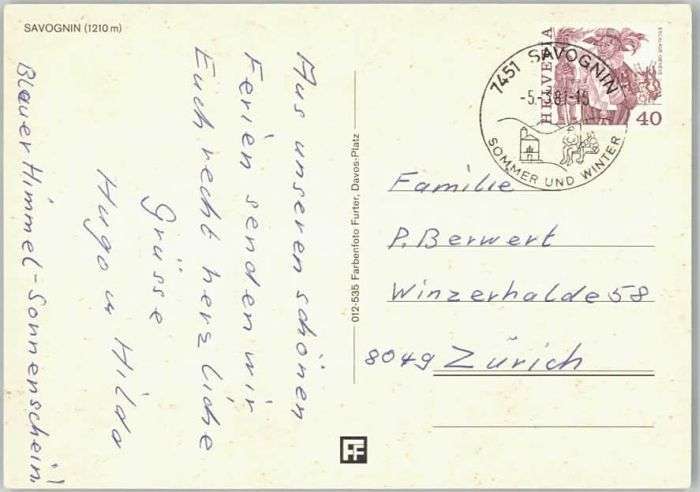 SAVOGNIN (1210 m)
Aus unseren schönen
Ferien senden wir
Euch recht herzliche
Grüsse
Hugo u Hilda
Blauer Himmel - Sonnenschein!
012-535 Farbenfoto Furter, Davos-Platz
HELVETIA
40
7451 SAVOGNIN
-5.-3.81-15
SOMMER UND WINTER
Familie
P. Berwert
Winzerhalde 58
8049 Zürich
FF